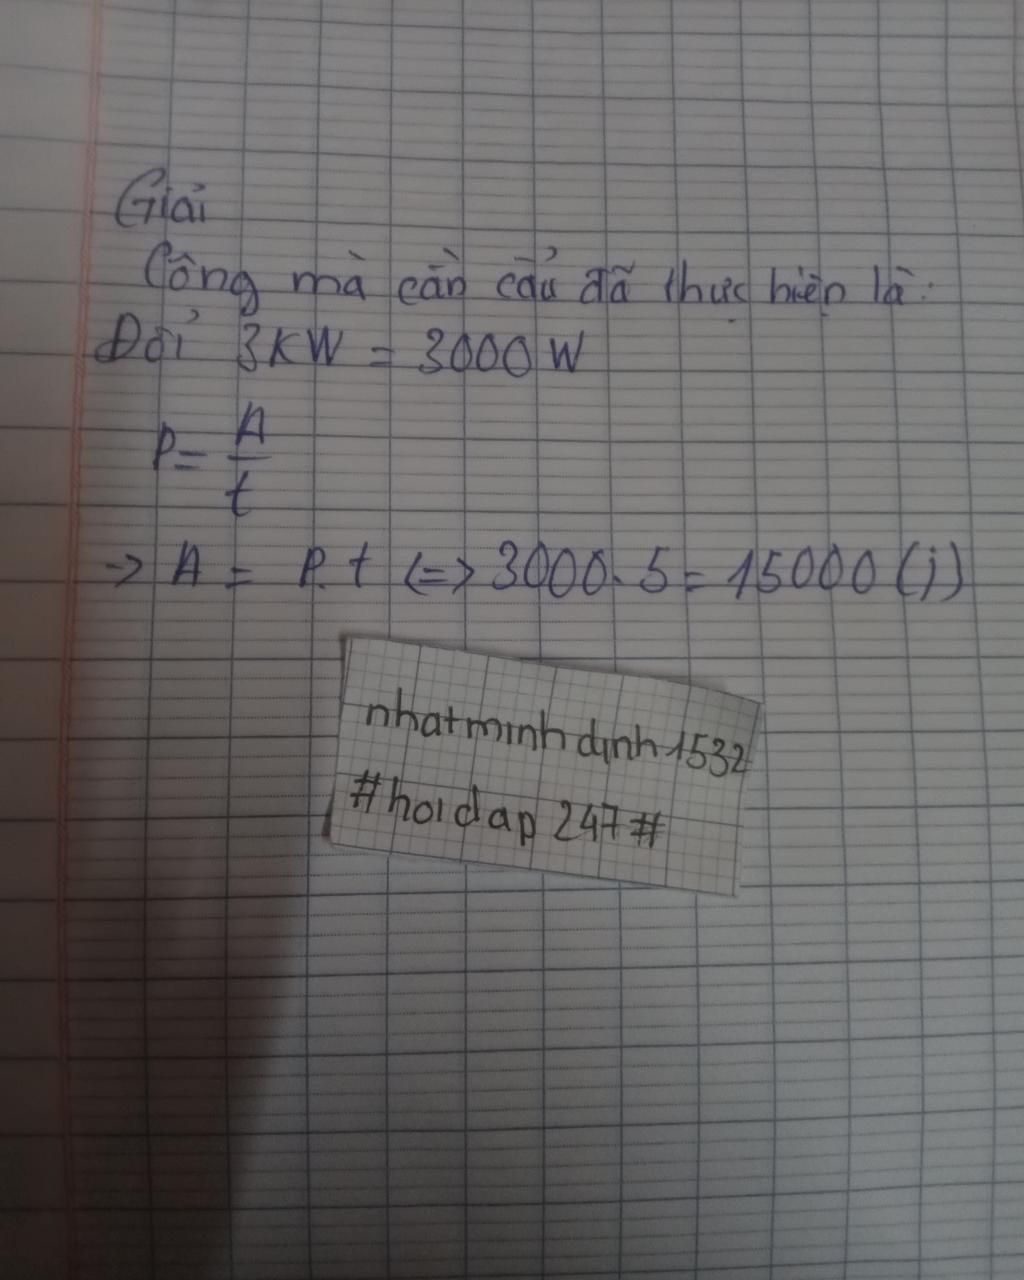 Giải
Công mà cần cẩu đã thực hiện là:
Đổi 3KW = 3000W
P = A
t
-> A = P. t <=> 3000. 5 = 15000 (j)
nhatminhdinh1532
#hoidap 247#